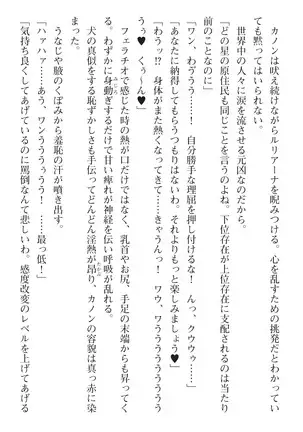 カノンは吠え続けながらルリアーナを睨みつける。心を乱すための挑発だとわかってい
ても黙ってはいられない。
世界中の人々に涙を流させる元凶なのだから。
「どの星の原住民も同じことを言うのよね。下位存在が上位存在に支配されるのは当たり
前のことなのに」
「ワン、わううっ! 自分勝手な理屈を押しつけないでよね! んっ、クウウゥ……」
「あなたに納得してもらうつもりはないわ。それよりもっと楽しみましょう♥」
「わうっ!? 身体がまた熱くなってきて……きゃうんっ! ワウ、ワううううううううう
うぅ♥ くぅーん♥」
フェラチオで感じた時の熱が口だけではなく、乳首やお尻、手足の末端からも昇ってく
る。わずかに身動ぎするだけで甘い痺れが神経を伝い呼吸が乱れる。
犬の真似をする恥ずかしさも手伝ってどんどん淫熱が昂り、カノンの容貌は真っ赤に染
うなじや腋のくぼみから羞恥の汗が噴き出す。
「ハァハァ……あう、ワンうううううう! ……最っ低!」
「気持ち良くしてあげているのに罵倒なんて悪い子だわ。感度改変のレベルを上げてあげる